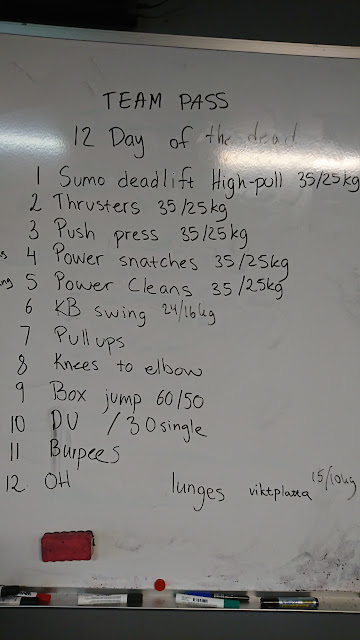 TEAM PASS
12 Day of the dead
1 Sumo deadlift High-pull 35/25kg
2 Thrusters 35/25kg
3 Push press 35/25kg
4 Power snatches 35/25kg
5 Power Cleans 35/25kg
6 KB swing 24/16kg
7 Pull ups
8 Knees to elbow
9 Box jump 60/50
10 DU / 30single
11 Burpees
12 OH lunges viktplatta 15/10kg